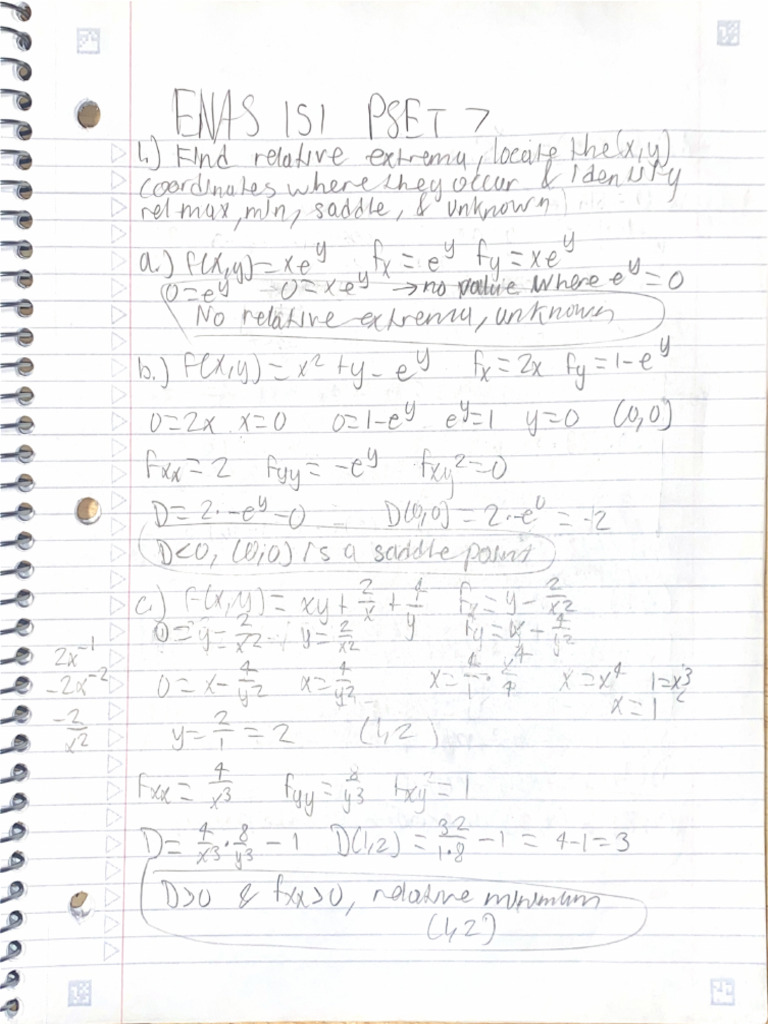 ENAS 151 PSET 7
1.) Find relative extrema, locate the (x,y)
coordinates where they occur & identify
rel max, min, saddle, & unknown
a.) f(x,y) = xe^y fx = e^y fy = xe^y
0 = e^y 0 = xe^y → no value where e^y = 0
No relative extrema, unknown
b.) f(x,y) = x² + y - e^y fx = 2x fy = 1 - e^y
0 = 2x x = 0 0 = 1 - e^y e^y = 1 y = 0 (0,0)
fxx = 2 fyy = -e^y fxy² = 0
D = 2 · -e^y - 0 D(0,0) = 2 · -e^0 = -2
D<0, (0,0) is a saddle point
c.) f(x,y) = xy + 2/x + 4/y fx = y - 2/x²
0 = y - 2/x² y = 2/x² fy = x - 4/y²
2x^-1
-2x^-2
-2/x²
0 = x - 4/y² x = 4/y² x = 4/1 · x^4/4 x = x^4 1 = x³
x = 1
y = 2/1 = 2 (1,2)
fxx = 4/x³ fyy = 8/y³ fxy² = 1
D = 4/x³ · 8/y³ - 1 D(1,2) = 32/1·8 - 1 = 4 - 1 = 3
D>0 & fxx>0, relative minimum
(1,2)